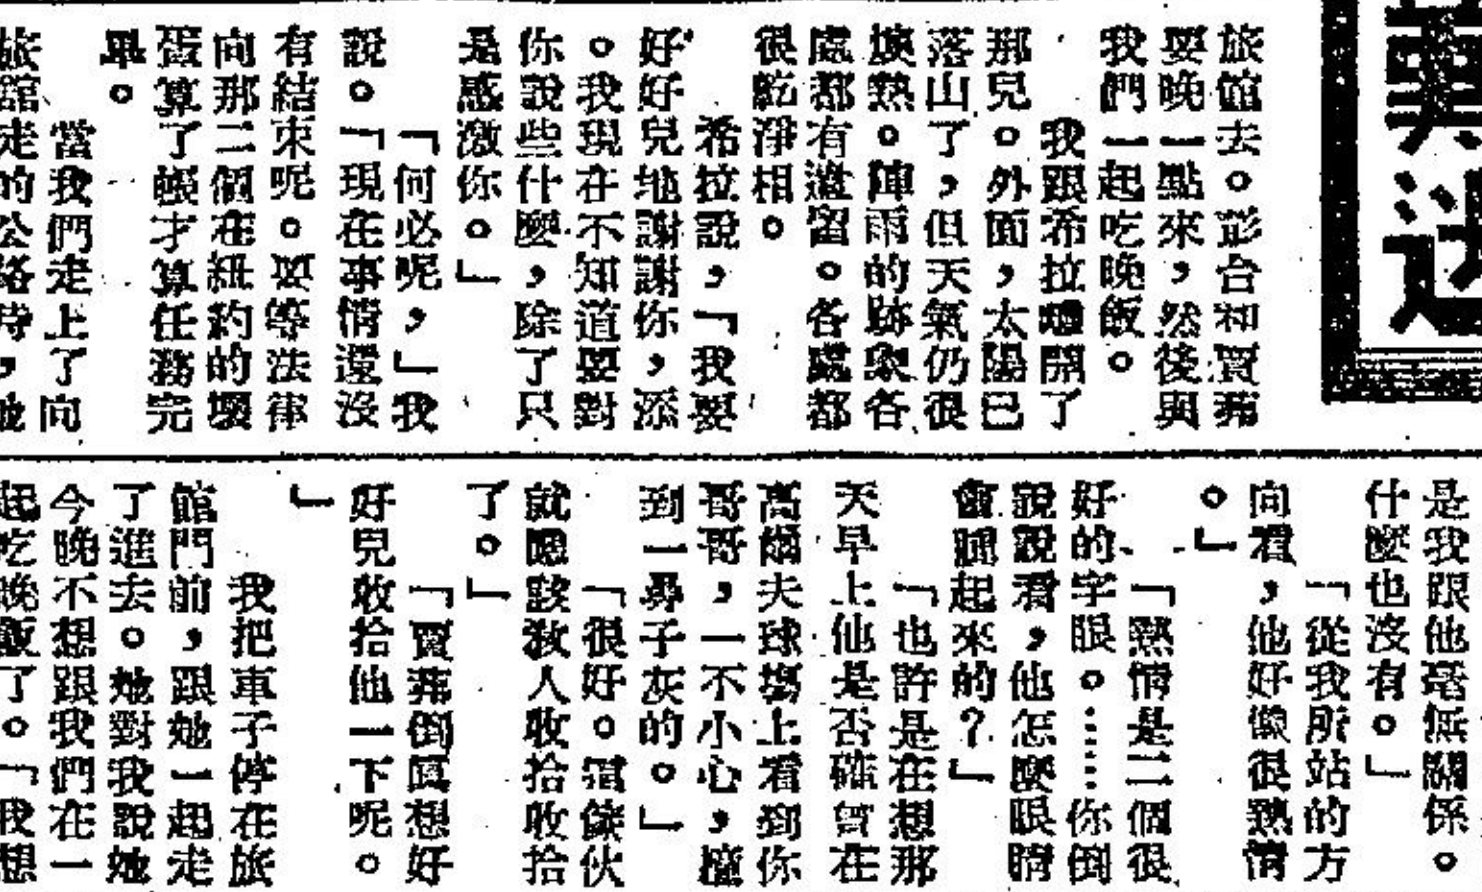 旅館去。彭台和賈弗
要晚一點來，然後與
我們一起吃晚飯。
我跟希拉離開了
那兒。外面，太陽已
落山了，但天氣仍很
燠熱。陣雨的跡象各
處都有遺留。各處都
很乾淨相。
希拉說，「我要
好好兒地謝謝你，添
。我現在不知道要對
你說些什麼，除了只
是感激你。」
「何必呢，」我
說。「現在事情還沒
有結束呢。要等法律
向那二個在紐約的壞
蛋算了帳才算任務完
畢。
當我們走上了向
旅館走的公路時，她
是我跟他毫無關係。
什麼也沒有。」
「從我所站的方
向看，他好像很熱情
。」
「熱情是二個很
好的字眼。……你倒
說說看，他怎麼眼睛
會腫起來的？」
「也許是在想那
天早上他是否確曾在
高爾夫球場上看到你
哥哥，一不小心，
到一鼻子灰的。」
「很好。這傢伙
就應該教人收拾收拾
了。」
「賈弗倒真想好
好兒收拾他一下呢。
」
我把車子停在旅
館門前，跟她一起走
了進去。她對我說她
今晚不想跟我們在一
起吃晚飯了。「我想